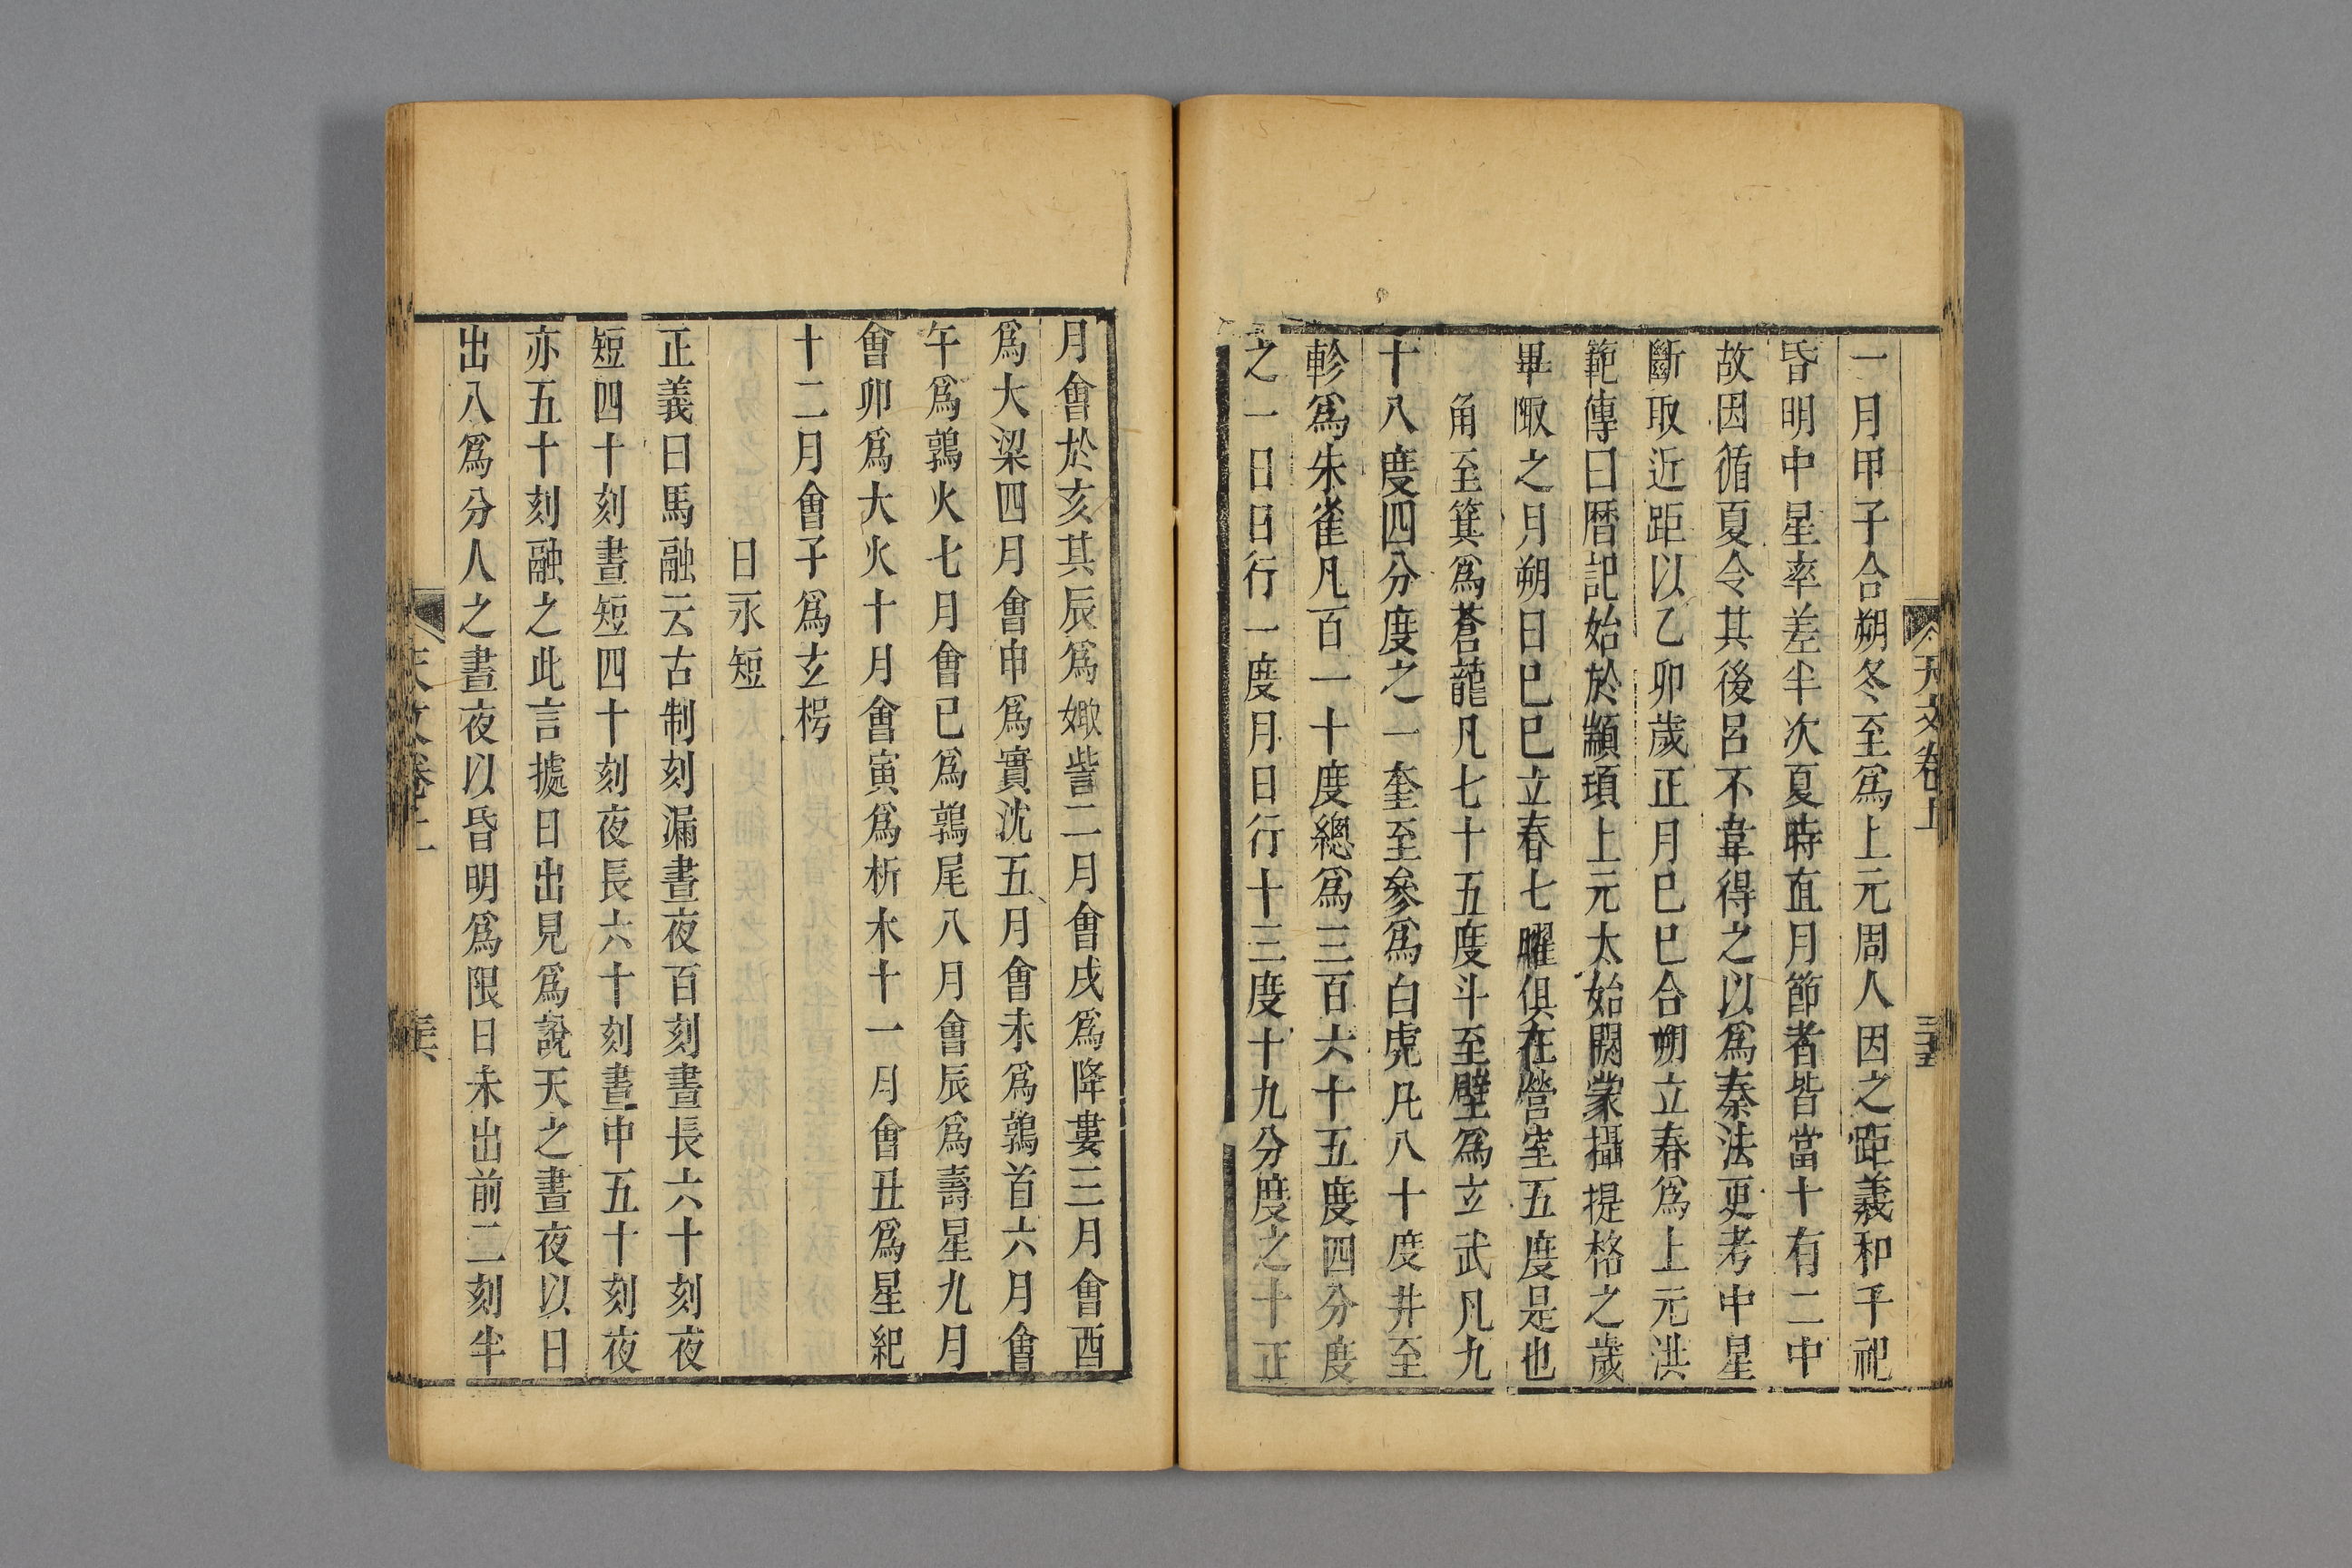 天文卷上 三十五
一月甲子合朔冬至爲上元周人因之距羲和千祀
昏明中星率差半次夏時直月節者皆當十有二中
故因循夏令其後呂不韋得之以爲秦法更考中星
斷取近距以乙卯歲正月己巳合朔立春爲上元洪
範傳曰曆記始於顓頊上元太始閼蒙攝提格之歲
畢陬之月朔日己巳立春七曜俱在營室五度是也
角至箕爲蒼龍凡七十五度斗至壁爲玄武凡九
十八度四分度之一奎至參爲白虎凡八十度井至
軫爲朱雀凡百一十度總爲三百六十五度四分度
之一日日行一度月日行十三度十九分度之十正
月會於亥其辰爲娵訾二月會戌爲降婁三月會酉
爲大梁四月會申爲實沈五月會未爲鶉首六月會
午爲鶉火七月會巳爲鶉尾八月會辰爲壽星九月
會卯爲大火十月會寅爲析木十一月會丑爲星紀
十二月會子爲玄枵
日永短
正義曰馬融云古制刻漏晝夜百刻晝長六十刻夜
短四十刻晝短四十刻夜長六十刻晝中五十刻夜
亦五十刻融之此言據日出見爲說天之晝夜以日
出入爲分人之晝夜以昏明爲限日未出前二刻半
天文卷上